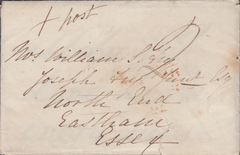 + post
Mrs William S. Fry
Joseph
North End
Eastham
Essex